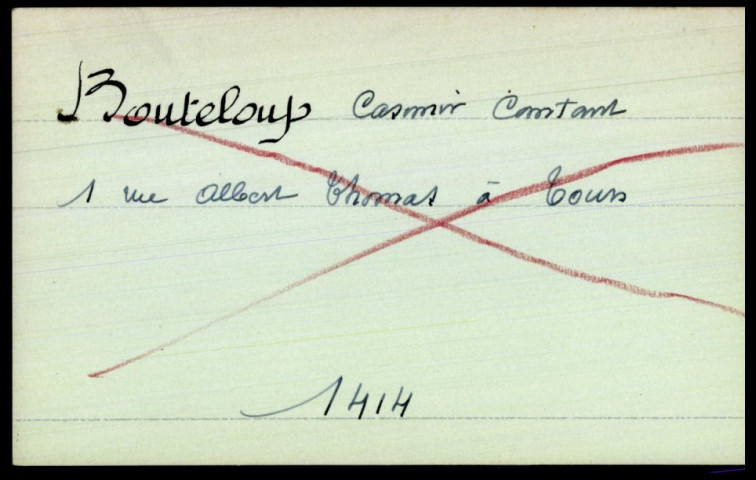 Bouteloup Casimir Constant
1 rue Albert Thomas à Tours
1414